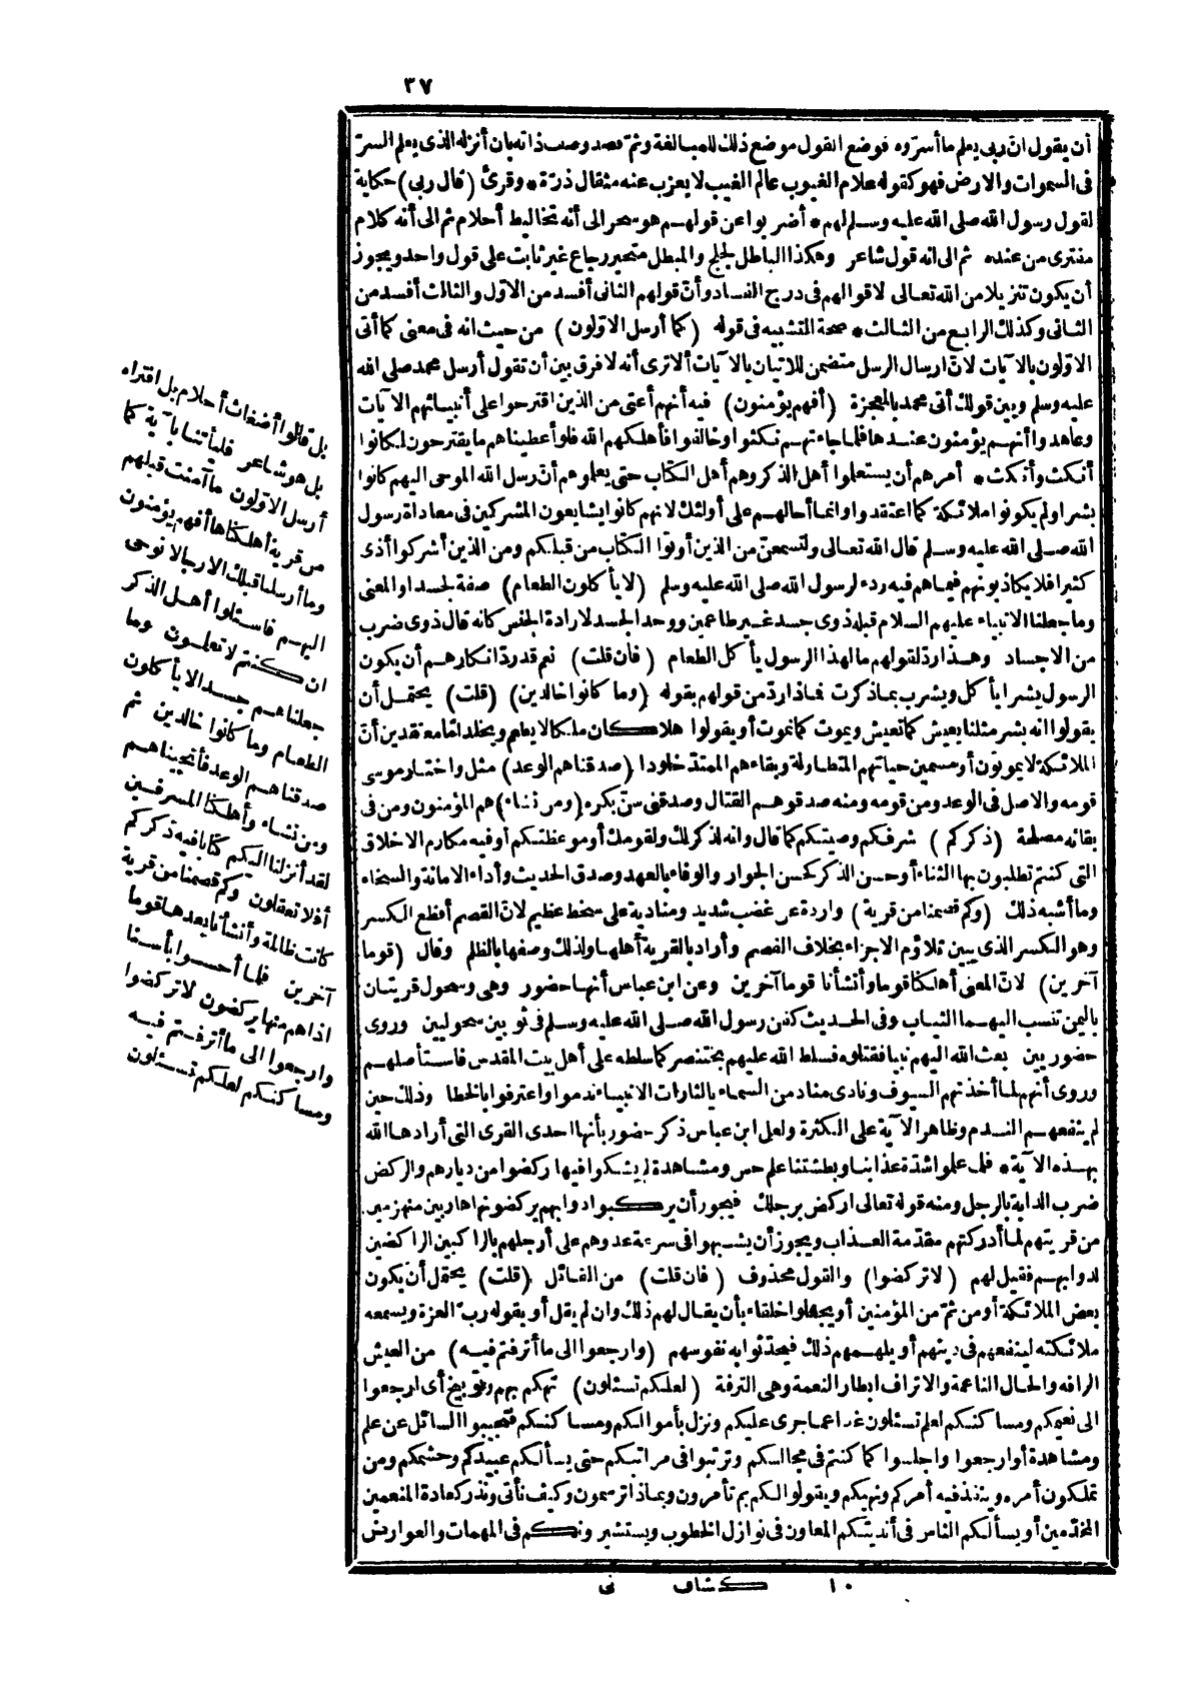 ٣٧
أن يقول انّ ربى يعلم ما أسرّوه فوضع القول موضع ذلك للمبالغة وثمّ قصد وصف ذاته بان أنزله الذى يعلم السرّ
فى السموات والارض فهو كقوله علام الغيوب عالم الغيب لا يعزب عنه مثقال ذرّة * وقرئ (قال ربى) حكاية
لقول رسول الله صلى الله عليه وسلم لهم * أضربوا عن قولهم هو سحر الى أنه تخاليط أحلام ثم الى أنه كلام
مفترى من عنده ثم الى انه قول شاعر وهكذا الباطل لجلج والمبطل متحير رجاع غير ثابت على قول واحد ويجوز
أن يكون تنزيلا من الله تعالى لاقوالهم فى درج الفساد وأنّ قولهم الثانى أفسد من الاوّل والثالث أفسد من
الثانى وكذلك الرابع من الثالث * صحة التشبيه فى قوله (كما أرسل الاوّلون) من حيث انه فى معنى كما أتى
الاوّلون بالآيات لانّ ارسال الرسل متضمن للاتيان بالآيات ألا ترى أنه لا فرق بين أن تقول أرسل محمد صلى الله
عليه وسلم وبين قولك أتى محمد بالمعجزة (أفهم يؤمنون) فيه أنهم أعتى من الذين اقترحوا على أنبيائهم الآيات
وعاهدوا أنهم يؤمنون عندها فلما جاءتهم نكثوا وخالفوا فأهلكهم الله فلو أعطيناهم ما يقترحون لكانوا
أنكث وأنكث * أمرهم أن يستعلموا أهل الذكر وهم أهل الكتاب حتى يعلموهم أنّ رسل الله الموحى اليهم كانوا
بشرا ولم يكونوا ملائكة كما اعتقدوا وانما أحالهم على أولئك لانهم كانوا يشايعون المشركين فى معاداة رسول
الله صلى الله عليه وسلم قال الله تعالى ولتسمعنّ من الذين أوتوا الكتاب من قبلكم ومن الذين أشركوا أذى
كثيرا فلا يكاذبونهم فيما هم فيه ردء لرسول الله صلى الله عليه وسلم (لا يأكلون الطعام) صفة لجسدا والمعنى
وما جعلنا الانبياء عليهم السلام قبله ذوى جسد غير طاعمين ووحد الجسد لارادة الجنس كانه قال ذوى ضرب
من الاجساد وهذا ردّ لقولهم مال هذا الرسول يأكل الطعام (فان قلت) نعم قد ردّ انكارهم أن يكون
الرسول بشرا يأكل ويشرب بما ذكرت فماذا ردّ من قولهم بقوله (وما كانوا خالدين) (قلت) يحتمل أن
يقولوا انه بشر مثلنا يعيش كما نعيش ويموت كما نموت أو يقولوا هلا كان ملكا لا يطعم ويخلد امّا معتقدين أنّ
الملائكة لا يموتون أو مسمين حياتهم المتطاولة وبقاءهم الممتدّ خلودا (صدقناهم الوعد) مثل واختار موسى
قومه والاصل فى الوعد ومن قومه ومنه صدقوهم القتال وصدقنى سنّ بكره (ومن نشاء) هم المؤمنون ومن فى
بقائه مصلحة (ذكركم) شرفكم وصيتكم كما قال وانه لذكر لك ولقومك أو موعظتكم أو فيه مكارم الاخلاق
التى كنتم تطلبون بها الثناء أو حسن الذكر كحسن الجوار والوفاء بالعهد وصدق الحديث وأداء الامانة والسخاء
وما أشبه ذلك (وكم قصمنا من قرية) واردة عن غضب شديد ومنادية على سخط عظيم لانّ القصم أفظع الكسر
وهو الكسر الذى يبين تلاؤم الاجزاء بخلاف الفصم وأراد بالقرية أهلها ولذلك وصفها بالظلم وقال (قوما
آخرين) لانّ المعنى أهلكنا قوما وأنشأنا قوما آخرين وعن ابن عباس أنها حضور وهى وسحول قريتان
باليمن تنسب اليهما الثياب وفى الحديث كفن رسول الله صلى الله عليه وسلم فى ثوبين سحوليين وروى
حضوريين بعث الله اليهم نبيا فقتلوه فسلط الله عليهم بختنصر كما سلطه على أهل بيت المقدس فاستأصلهم
وروى أنهم لما أخذتهم السيوف ونادى مناد من السماء يا لثارات الانبياء ندموا واعترفوا بالخطا وذلك حين
لم ينفعهم الندم وظاهر الآية على الكثرة ولعل ابن عباس ذكر حضور بأنها احدى القرى التى أرادها الله
بهذه الآية * فلما علموا شدّة عذابنا وبطشتنا علم حس ومشاهدة لم يشكوا فيها ركضوا من ديارهم والركض
ضرب الدابة بالرجل ومنه قوله تعالى اركض برجلك فيجوز أن يركبوا دوابهم يركضونها هاربين منهزمين
من قريتهم لما أدركتهم مقدّمة العذاب ويجوز أن يشبهوا فى سرعة عدوهم على أرجلهم بالراكبين الراكضين
لدوابهم فقيل لهم (لا تركضوا) والقول محذوف (فان قلت) من القائل (قلت) يحتمل أن يكون
بعض الملائكة أو من ثمّ من المؤمنين أو يجعلوا خلقاء بأن يقال لهم ذلك وان لم يقل أو يقوله ربّ العزة ويسمعه
ملائكته لينفعهم فى دينهم أو يلهمهم ذلك فيحدّثوا به نفوسهم (وارجعوا الى ما أترفتم فيه) من العيش
الرافه والحال الناعمة والاتراف ابطار النعمة وهى الترفة (لعلكم تسئلون) تهكم بهم وتوبيخ أى ارجعوا
الى نعيمكم ومساكنكم لعلكم تسئلون غدا عما جرى عليكم ونزل بأموالكم ومساكنكم فتجيبوا السائل عن علم
ومشاهدة أو ارجعوا واجلسوا كما كنتم فى مجالسكم وترتبوا فى مراتبكم حتى يسألكم عبيدكم وحشمكم ومن
تملكون أمره وينفذ فيه أمركم ونهيكم ويقولوا لكم بم تأمرون وبماذا ترسمون وكيف نأتى ونذر كعادة المنعمين
المخدّمين أو يسألكم الناس فى أنديتكم المعاون فى نوازل الخطوب ويستشيرونكم فى المهمات والعوارض
بل قالوا أضغاث أحلام بل افتراه
بل هو شاعر فليأتنا بآية كما
أرسل الاوّلون ما آمنت قبلهم
من قرية أهلكناها أفهم يؤمنون
وما أرسلنا قبلك الا رجالا نوحى
اليهم فاسئلوا أهل الذكر
ان كنتم لا تعلمون وما
جعلناهم جسدا لا يأكلون
الطعام وما كانوا خالدين ثم
صدقناهم الوعد فأنجيناهم
ومن نشاء وأهلكنا المسرفين
لقد أنزلنا اليكم كتابا فيه ذكركم
أفلا تعقلون وكم قصمنا من قرية
كانت ظالمة وأنشأنا بعدها قوما
آخرين فلما أحسوا بأسنا
اذا هم منها يركضون لا تركضوا
وارجعوا الى ما أترفتم فيه
ومساكنكم لعلكم تسئلون
١٠ كشاف نى